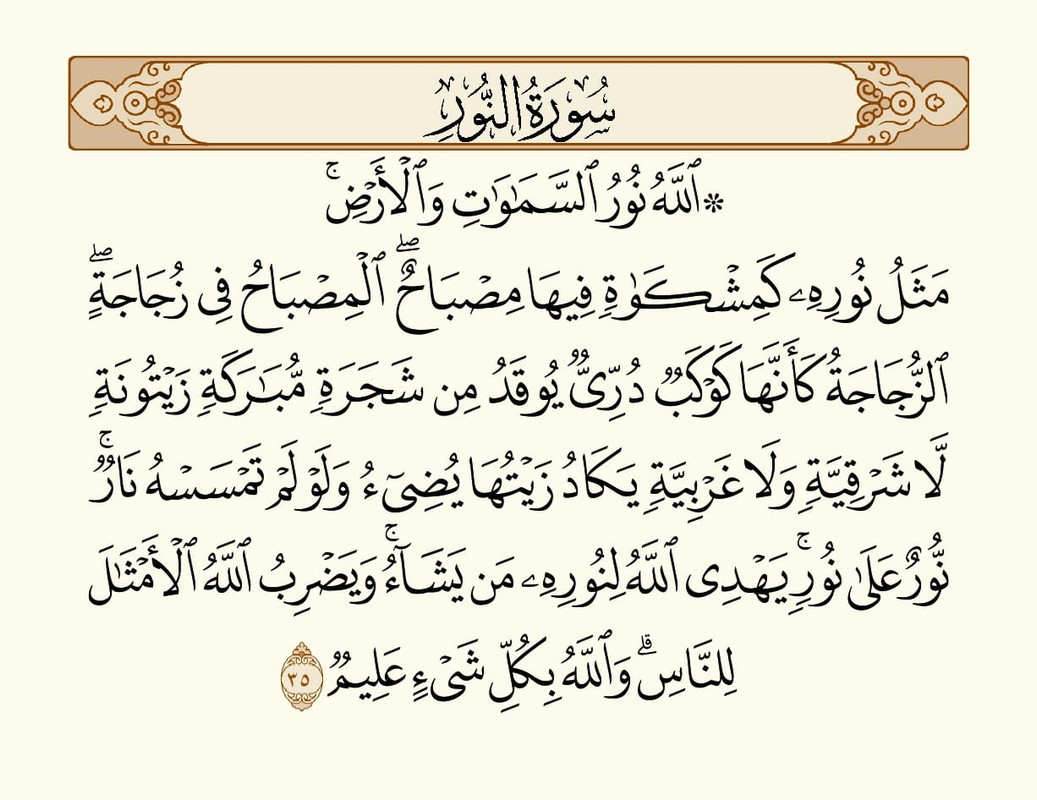 سُورَةُ النُّورِ
۞ ٱللَّهُ نُورُ ٱلسَّمَٰوَٰتِ وَٱلْأَرْضِۚ
مَثَلُ نُورِهِۦ كَمِشْكَوٰةٖ فِيهَا مِصْبَاحٌۖ ٱلْمِصْبَاحُ فِي زُجَاجَةٍۖ
ٱلزُّجَاجَةُ كَأَنَّهَا كَوْكَبٞ دُرِّيّٞ يُوقَدُ مِن شَجَرَةٖ مُّبَٰرَكَةٖ زَيْتُونَةٖ
لَّا شَرْقِيَّةٖ وَلَا غَرْبِيَّةٖ يَكَادُ زَيْتُهَا يُضِيٓءُ وَلَوْ لَمْ تَمْسَسْهُ نَارٞۚ
نُّورٌ عَلَىٰ نُورٖۚ يَهْدِي ٱللَّهُ لِنُورِهِۦ مَن يَشَآءُۚ وَيَضْرِبُ ٱللَّهُ ٱلْأَمْثَٰلَ
لِلنَّاسِۗ وَٱللَّهُ بِكُلِّ شَيْءٍ عَلِيمٞ ٣٥